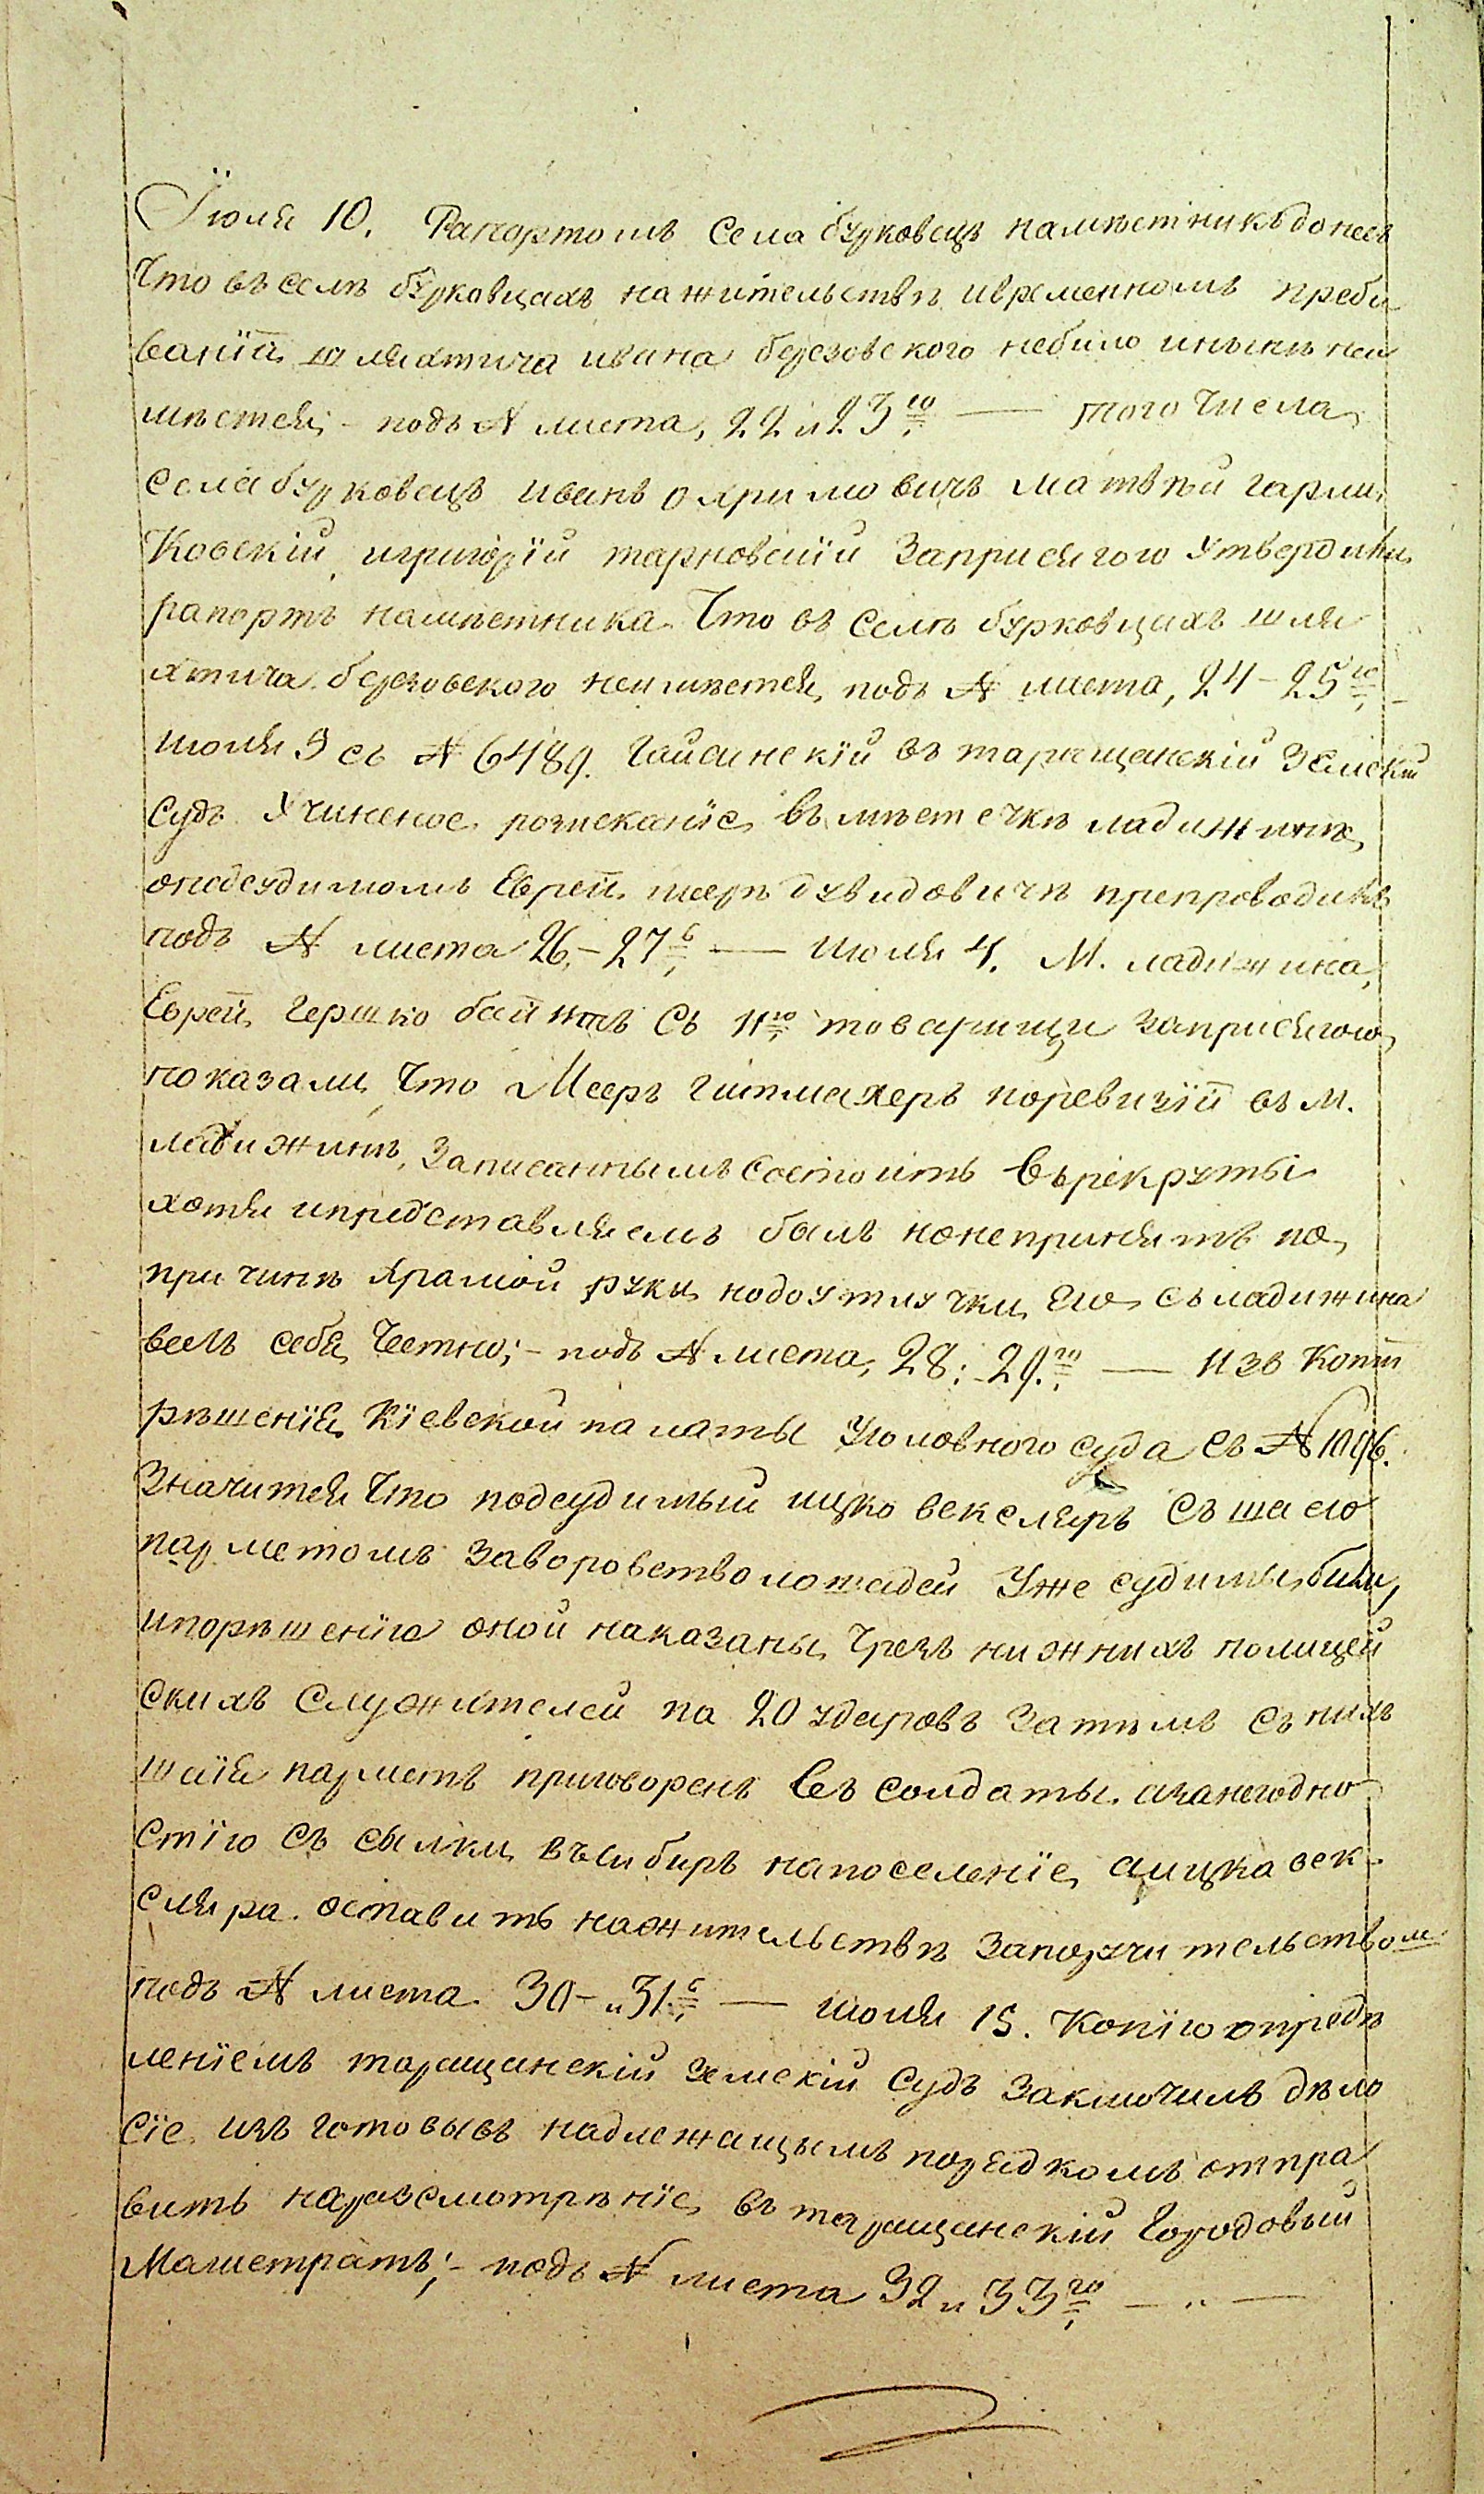 Іюля 10. Рапортомъ села бурковецъ намѣстникъ донесъ
Что въ селѣ бурковцахъ на жительствѣ ивременномъ преби
ваніи шляхтича ивана березовского небило инынѣ неи
мѣется; - подъ № листа, 22 и 23го — того Числа
села бурковецъ иванъ охримовичъ матвѣй гарли
Ковскій игригорій тарновскій Заприсягою Утвердили
рапортъ намѣстника Что въ селѣ бурковцахъ шля
хтича березовского неимѣется, подъ № листа, 24 - 25го -
июля 9 съ № 6489. Гайсинскій въ таращанскій Земскій
Судъ Учиненое розисканіе въ мѣстечкѣ ладижинѣ
онодсудимомъ Евреи меерѣ дувидовичѣ препроводилъ
подъ № листа 26 - 27е — июля 4. М. ладижина,
Евреи Гершко Съ 11ю товарищи заприсягою
показали Что Мееръ гитмахеръ поревизіи въ м.
ладижинѣ, Записаннымъ Состоитъ въ рекруты
хотя ипредставляемъ былъ нонепринятъ по
причинѣ храмой руки нодоутлучки Его съ ладижина
велъ себя Честно; - подъ № листа, 28: 29.го — изъ Копіи
рѣшенія Кіевской палаты Уголовного суда съ № 1096.
Значится Что подсудимый ицко векслеръ Съ шаею
парметомъ Заворовство лошадей Уже судимы били,
ипорѣшенію оной наказаны Чрезъ нижнихъ полицей
скихъ Служителей по 20 ударовъ Затѣмъ съ нихъ
шаія парметъ приговоренъ въ Солдаты. азанегодно
стію Съ сылки въ сибиръ напоселеніе, аицка век
сляра. оставить нажительствѣ Запоручительством
подъ № листа 30 - и 31е — июля 15. Копіюопредѣ
леніемъ таращанскій земскій Судъ Заключилъ дѣло
Сіе изъ готовывъ надлежащымъ порядкомъ отпра
вить наразсмотрѣніе въ таращанскій Городовый
Магистратъ; - подъ № листа 32 и 33го — „ —